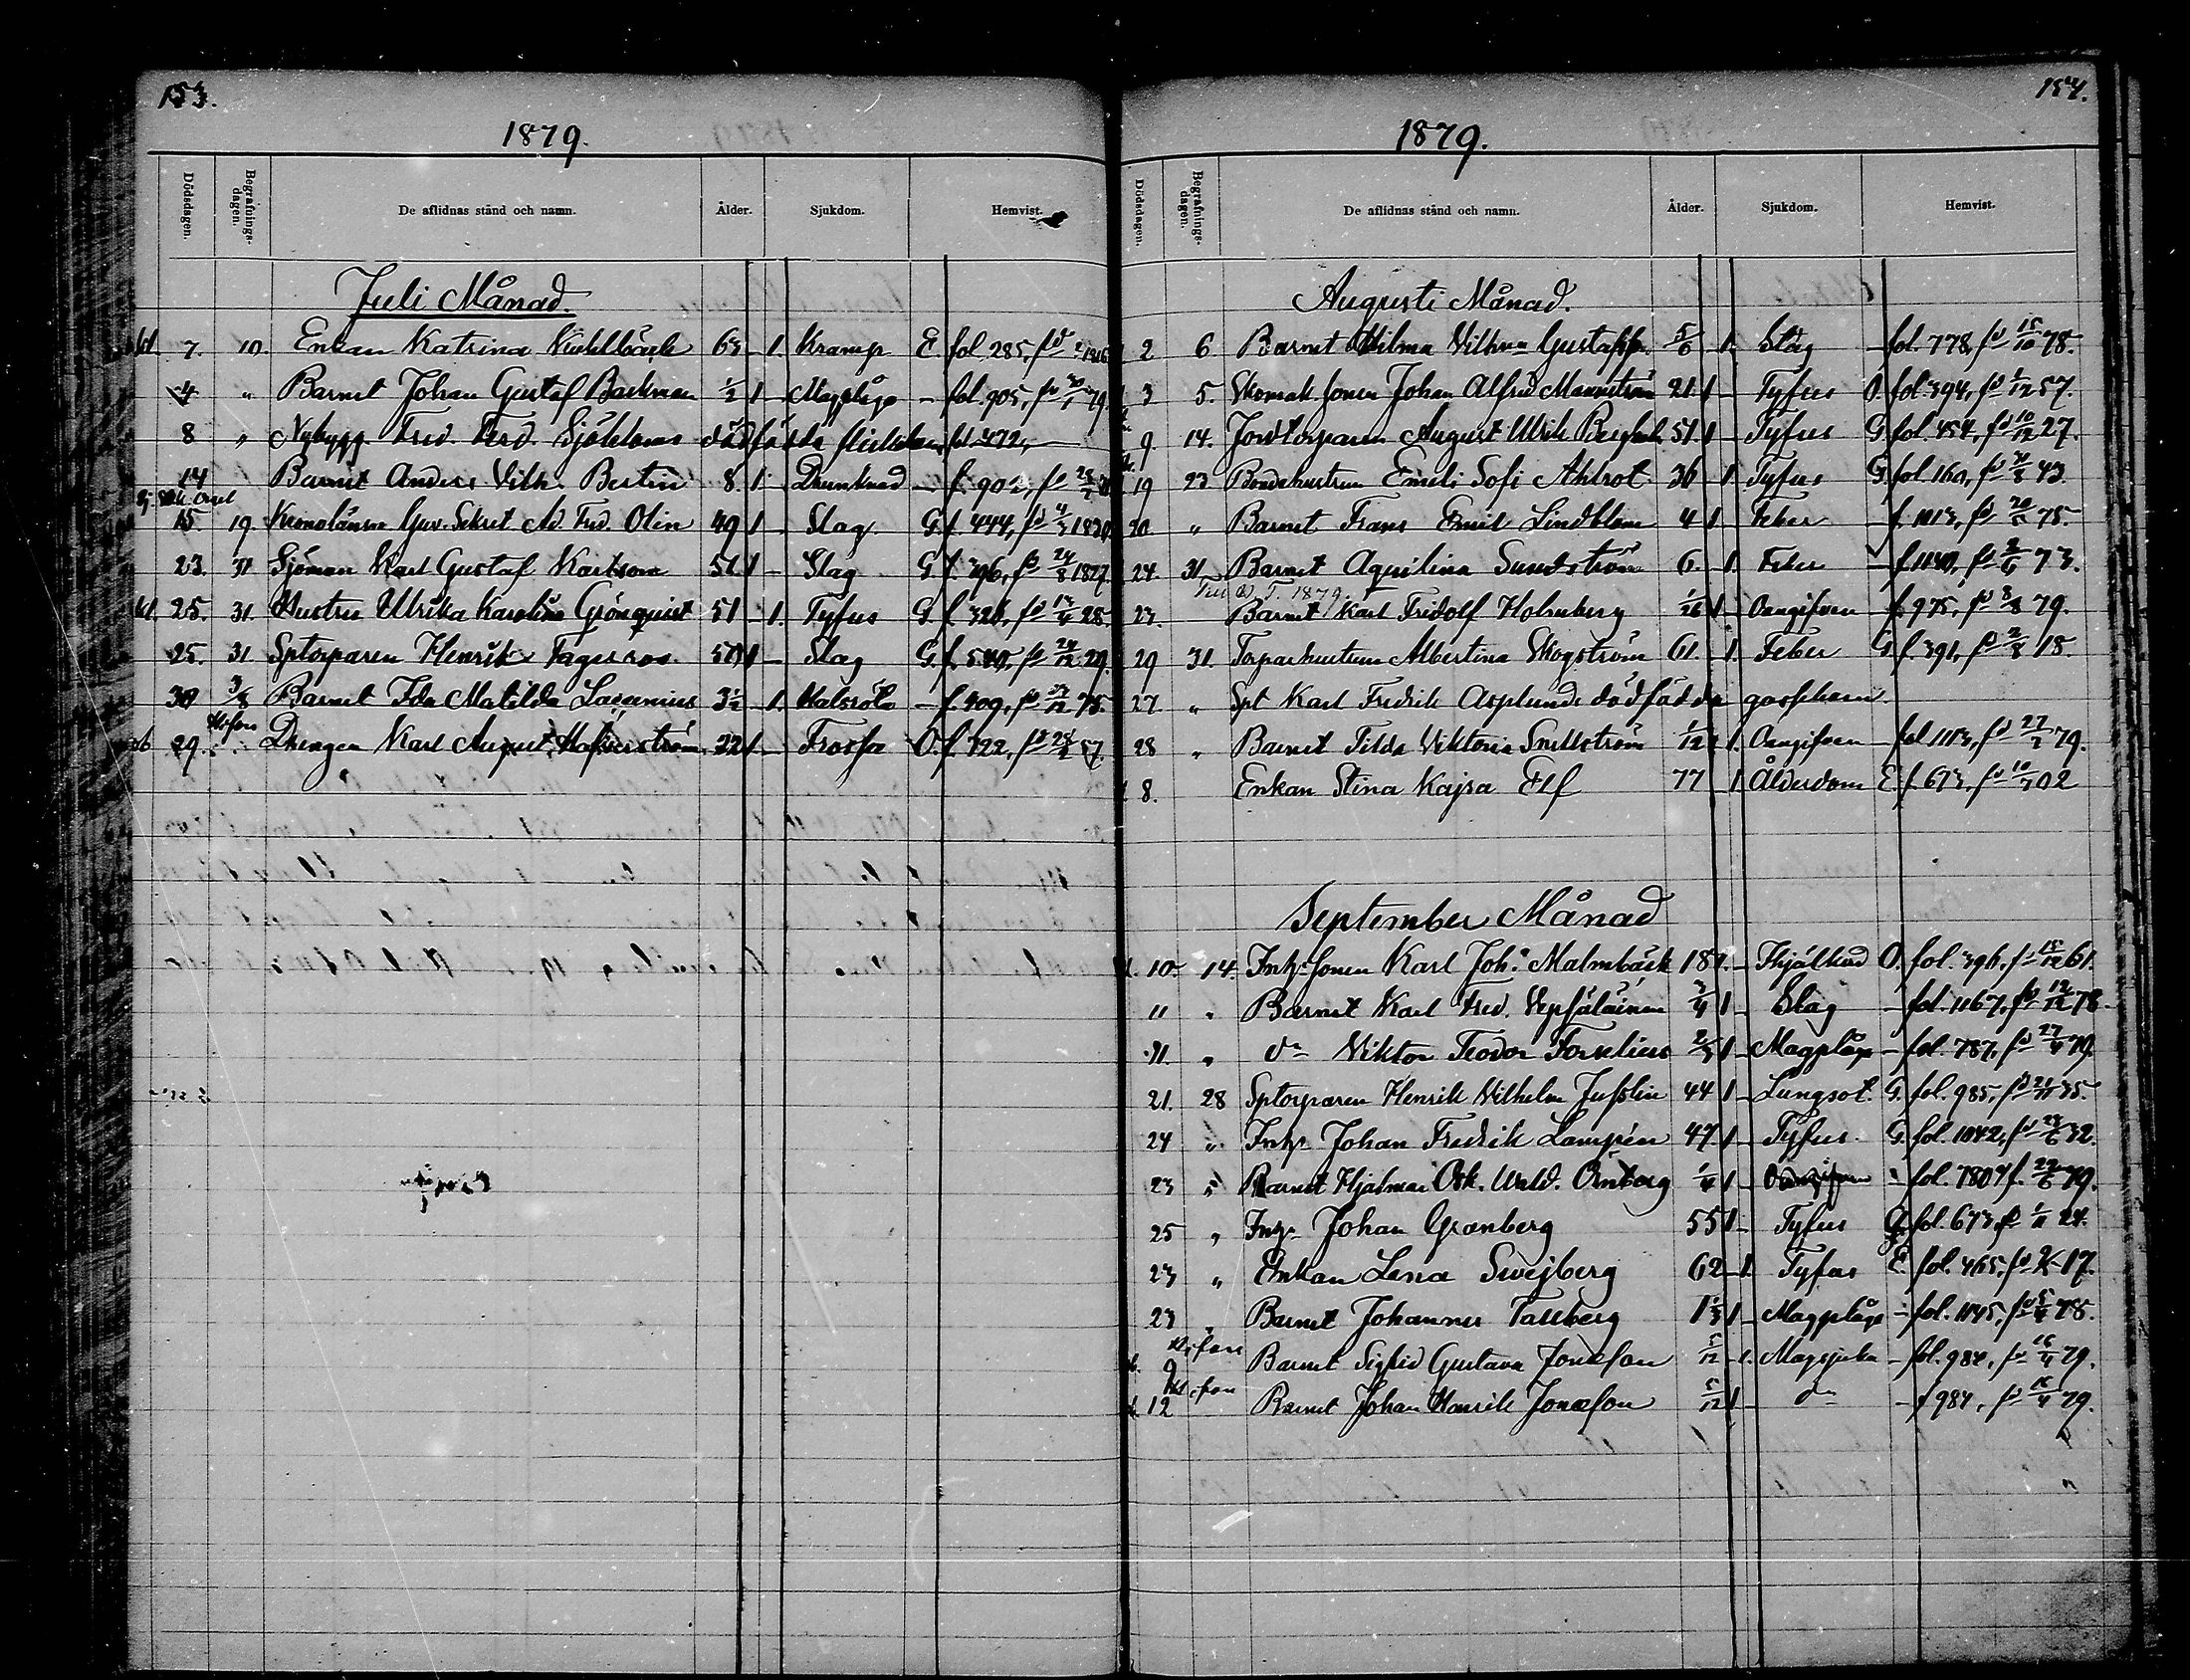 153.
1879.
Dödsdagen. Begrafnings-dagen. De aflidnas stånd och namn. Ålder. Sjukdom. Hemvist.
Juli Månad.
7. 10. Enkan Katrina 63 – 1. Kramp E. fol. 285, fd
4 " Barnet Johan Gustaf Backman ½ 1 – Magplåga – fol. 905, fd 79.
8 " Nybygg. Fred. Ferd. Sjöbloms dödfödda flickebarn, fol. 472, —
14 Barnet Anders Vilh. Bertin 8. 1. Drunknad – f. 902, fd
15. 19. Kronolänsm. Guv. Sekret. Ad. Fred. Olin 49 1 – Slag G. f. 444, fd 1830
23. 31 Sjöman Karl Gustaf Karlsson 51. 1 – Slag G. f. 396, fd 24/8 1827
25. 31. Hustru Ulrika Karolina Grönqvist 51 – 1. Tyfus G. f. 328, fd 13/4 28.
25. 31 Sptorparen Henrik Fagerroos 50 1 – Slag G. f. 540, fd 24/12 29.
30 3/8 Barnet Ida Matilda Lagenius 3½ – 1. Halsröta – f. 409, fd /12 75.
29. Drengen Karl August 22 1 – Frossa O. f. 122, fd 57.
154.
1879.
Dödsdagen. Begrafnings-dagen. De aflidnas stånd och namn. Ålder. Sjukdom. Hemvist.
Augusti Månad.
2 6 Barnet Hilma Vilhma Gustafss. 5/6 1. Slag – fol. 778, fd 15/10 78.
3 5. Skomak. sonen Johan Alfred Mannström 21. 1 – Tyfus O. fol. 394, fd 1/12 57.
9 14. Jordtorparen August Ulrik 51 1 – Tyfus G. fol. 454, fd 10/12 27.
19 23 Bondehustrun Emeli Sofi Ahlrot 36 1. Tyfus G. fol. 160, fd /8 43.
20. " Barnet Frans Emil Lindblom 4 1 – Feber – f. 1013, fd 75.
24. 31. Barnet Aquilina Sundström 6. – 1. Feber – f. 1140, fd 2/6 73.
Till D. T. 1879.
23. Barnet Karl Fridolf Holmberg 1/26 1 – Oangifven – f. 975, fd 8/8 79.
29 31. Torparhustrun Albertina Skogström 61. – 1. Feber G. f. 391, fd 2/8 18.
27. " Spt Karl Fredrik Asplunds dödfödda gossebarn.
28 " Barnet Tilda Viktoria Snellström 1/12 1. Oangifven – fol. 1113, fd 27/7 79.
8. Enkan Stina Kajsa Elf 77 1 Ålderdom E. f. 673, fd 10/7 02
September Månad
10. 14. Inhs sonen Karl Joh. Malmbäck 18 1. – Ihjälkad O. fol. 396, fd 15/12 61.
11 " Barnet Karl Fred. Vepsäläinen 3/4 1 – Slag – fol. 1167, fd 12/12 78.
11. " do Viktor Teodor Forselius 1 – Magplåga – fol. 787, fd 27/4 79.
21. 28 Sptorparen Henrik Vilhelm Jusslin 44 1 – Lungsot. G. fol. 985, fd 35.
24 " Inhs Johan Fredrik Lampén 47 1 – Tyfus G. fol. 1042, fd 32.
23 " Barnet Hjalmar Osk. Wald. Örnberg ¼ 1 – Oangifven " fol. 79.
25 " Inhs Johan Granberg 55 1 – Tyfus G. fol. 673, fd 24.
23 " Enkan Lena Swejberg 62 – 1. Tyfus E. fol. 465, fd 17.
23 " Barnet Johannes Tallberg 1⅓ 1 – Magplåga – fol. 1145, fd 78.
9 Barnet Sigrid Gustava Jonasson 5/12 – 1. Magsjuka – fol. 984, fd 16/4 79.
12 Barnet Johan Henrik Jonasson 5/12 1 – do – f. 984, fd 16/4 79.